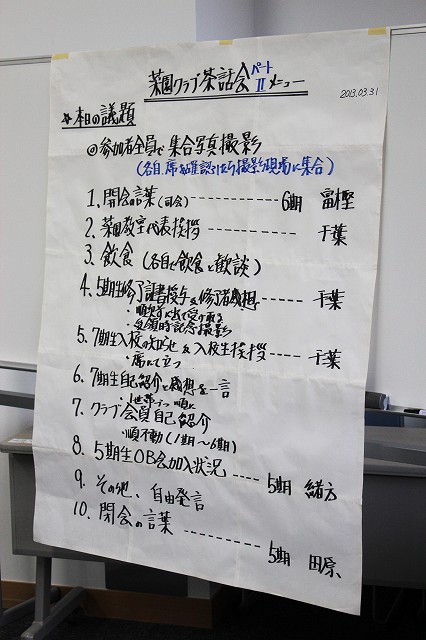 菜園クラブ茶話会パートⅡメニュー
2013.03.31
本日の議題
◎参加者全員で集合写真撮影
(各自、席を確認してから撮影現場に集合)
1. 開会の言葉(司会) 6期 富樫
2. 菜園教室代表挨拶 千葉
3. 飲食(各自で飲食と歓談)
4. 5期生修了証書授与&修了者感想 千葉
・順次前に出て受け取る
・受領時記念撮影
5. 7期生入校のお知らせ&入校生挨拶 千葉
・席にて立つ
6. 7期生自己紹介と感想を一言
・1世帯づつ順に
7. クラブ会員自己紹介
・順不動(1期〜6期)
8. 5期生OB会加入状況 5期 緒方
9. その他、自由発言
10. 閉会の言葉 5期 田原